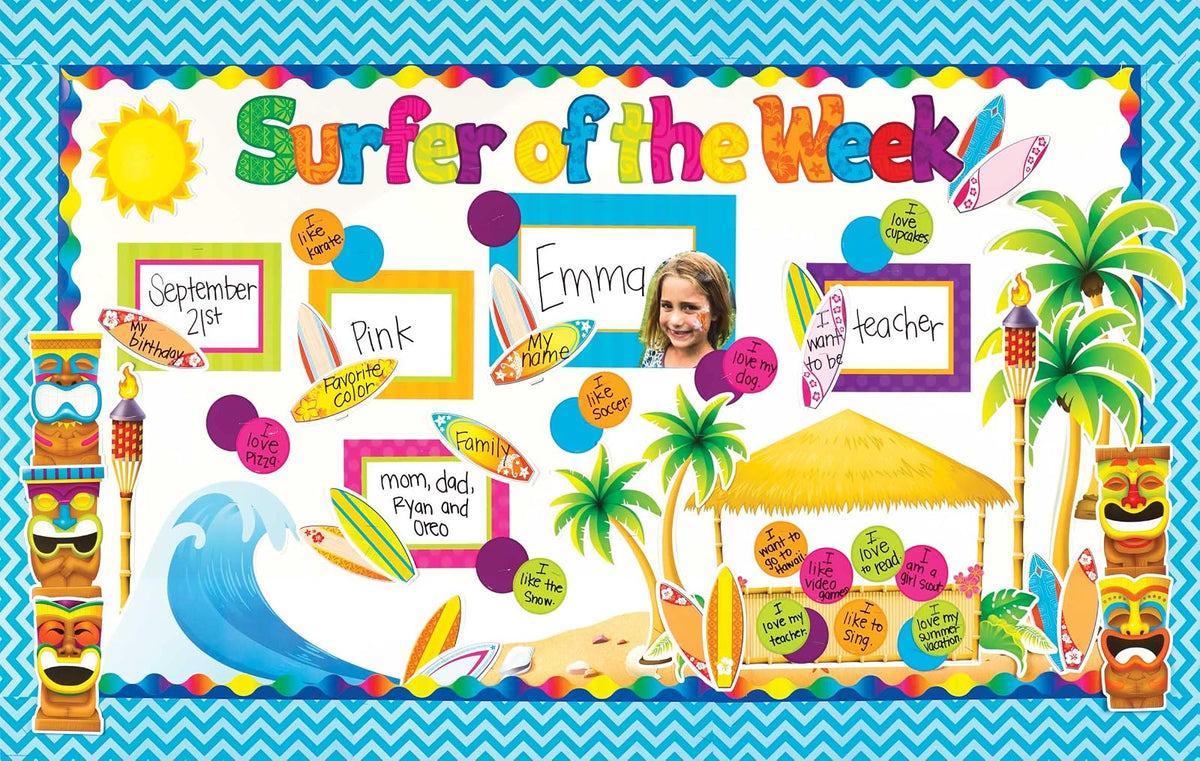 Surfer of the Week
I
like
karate.
I
love
cupcakes.
September
21st
My
birthday
Pink
Favorite
color
Emma
My
name
I
love my
dog.
I
want
to be
teacher
I
like
soccer.
I
love
Pizza
Family
mom, dad,
Ryan and
Oreo
I
like the
Snow.
I
want to
go to
Hawaii
I
like
video
games
I
love
to read.
I
am a
girl scout
I
love my
teacher.
I
like to
sing.
I
love my
summer
vacation.